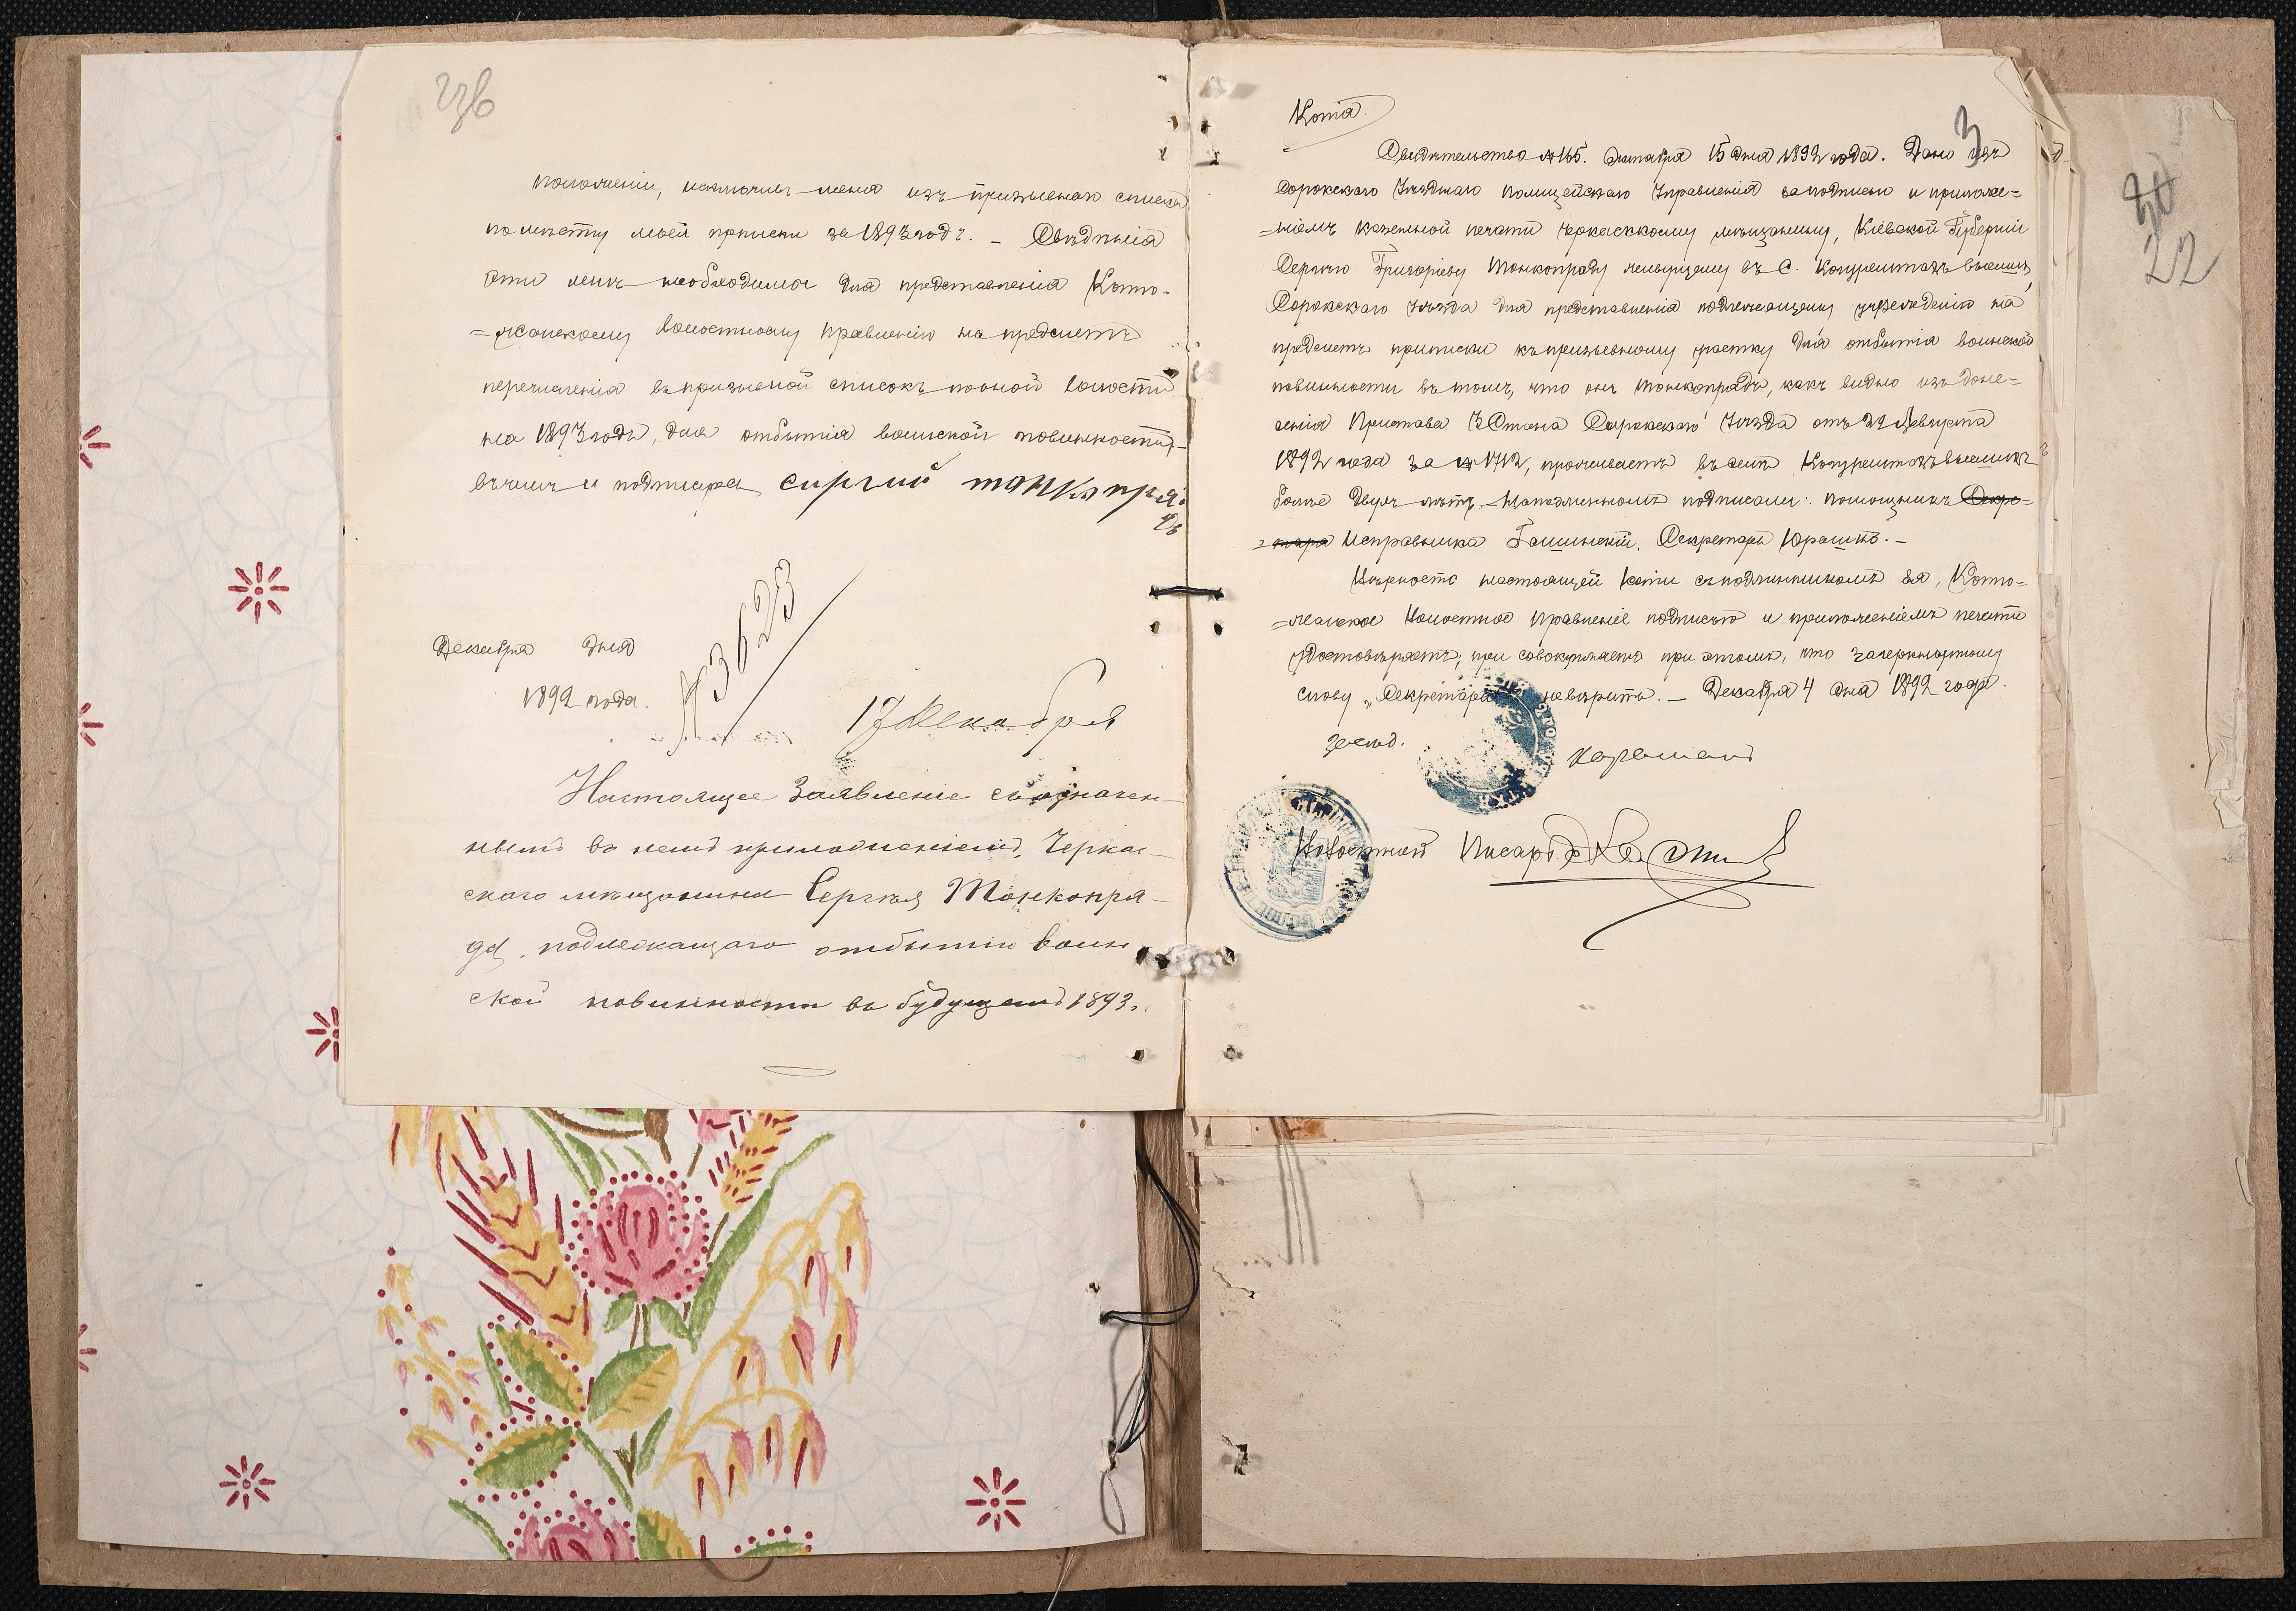 положеніи, исключивъ меня изъ призывнаго списка
по мѣсту моей приписки за 1893 годъ. – Свѣдѣнія
эти мнѣ необходимы для представленія Кото-
=жанскому волостному Правленію на предметъ
перечисленія въ призывной списокъ по оной волости
на 1893 годъ, для отбытія воинской повинности, –
въ чемъ и подписуюсь Сиргий Тонкопря-
дъ
№ 3623
Декабря дня
1892 года.
17 Декабря
Настоящее Заявленіе съ означен-
нымъ въ немъ приложеніемъ, Черкас-
скаго мѣщанина Сергѣя Тонкопря-
да, подлежащаго отбытію воин-
ской повинности въ будущемъ 1893.
Копія.
3
Свидѣтельство № 165. Октября 15 дня 1892 года. Дано изъ
Сорокскаго Уѣзднаго Полицейскаго Управленія за подписью и приложе-
=ніемъ казенной печати Черкасскому мѣщанину, Кіевской Губерніи
Сергѣю Григорьеву Тонкопряду живущему въ С.
Сорокскаго Уѣзда для представленія подлежащему учрежденію на
предметъ приписки къ призывному участку для отбытія воинской
повинности въ томъ, что онъ Тонкопрядъ, какъ видно изъ доне-
сенія Пристава 3 Стана Сорокскаго Уѣзда отъ 22 Августа
1892 года за № 1712, проживаетъ въ селѣ
болѣе двухъ лѣтъ. – На подлинномъ подписали: Помощникъ Секре-
=таря Исправника Секретарь Юрашко. –
Вѣрность настоящей копіи съ подлинникомъ ея, Кото-
=жанское Волостное Правленіе подписью и приложеніемъ печати
удостовѣряетъ, при совокупляетъ при этомъ, что зачеркнутому
слову „Секретаря" невѣрить. – Декабря 4 дня 1892 года.
Караманъ
Волостной Писарь
22